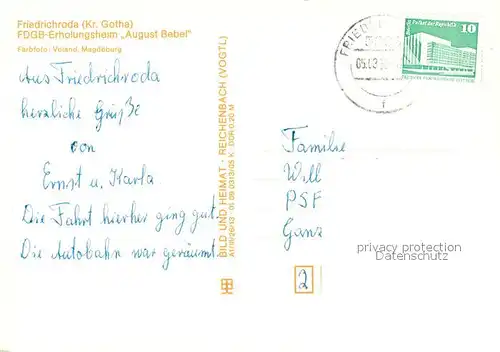 Friedrichroda (Kr. Gotha)
FDGB-Erholungsheim „August Bebel"
Farbfoto: Voland, Magdeburg
Aus Friedrichroda
herzliche Grüße
von
Ernst u. Karla
Die Fahrt hierher ging gut.
Die Autobahn war geräumt.
BILD UND HEIMAT · REICHENBACH (VOGTL)
10
Familie
Will
PSF
Ganz
2
privacy protection
Datenschutz